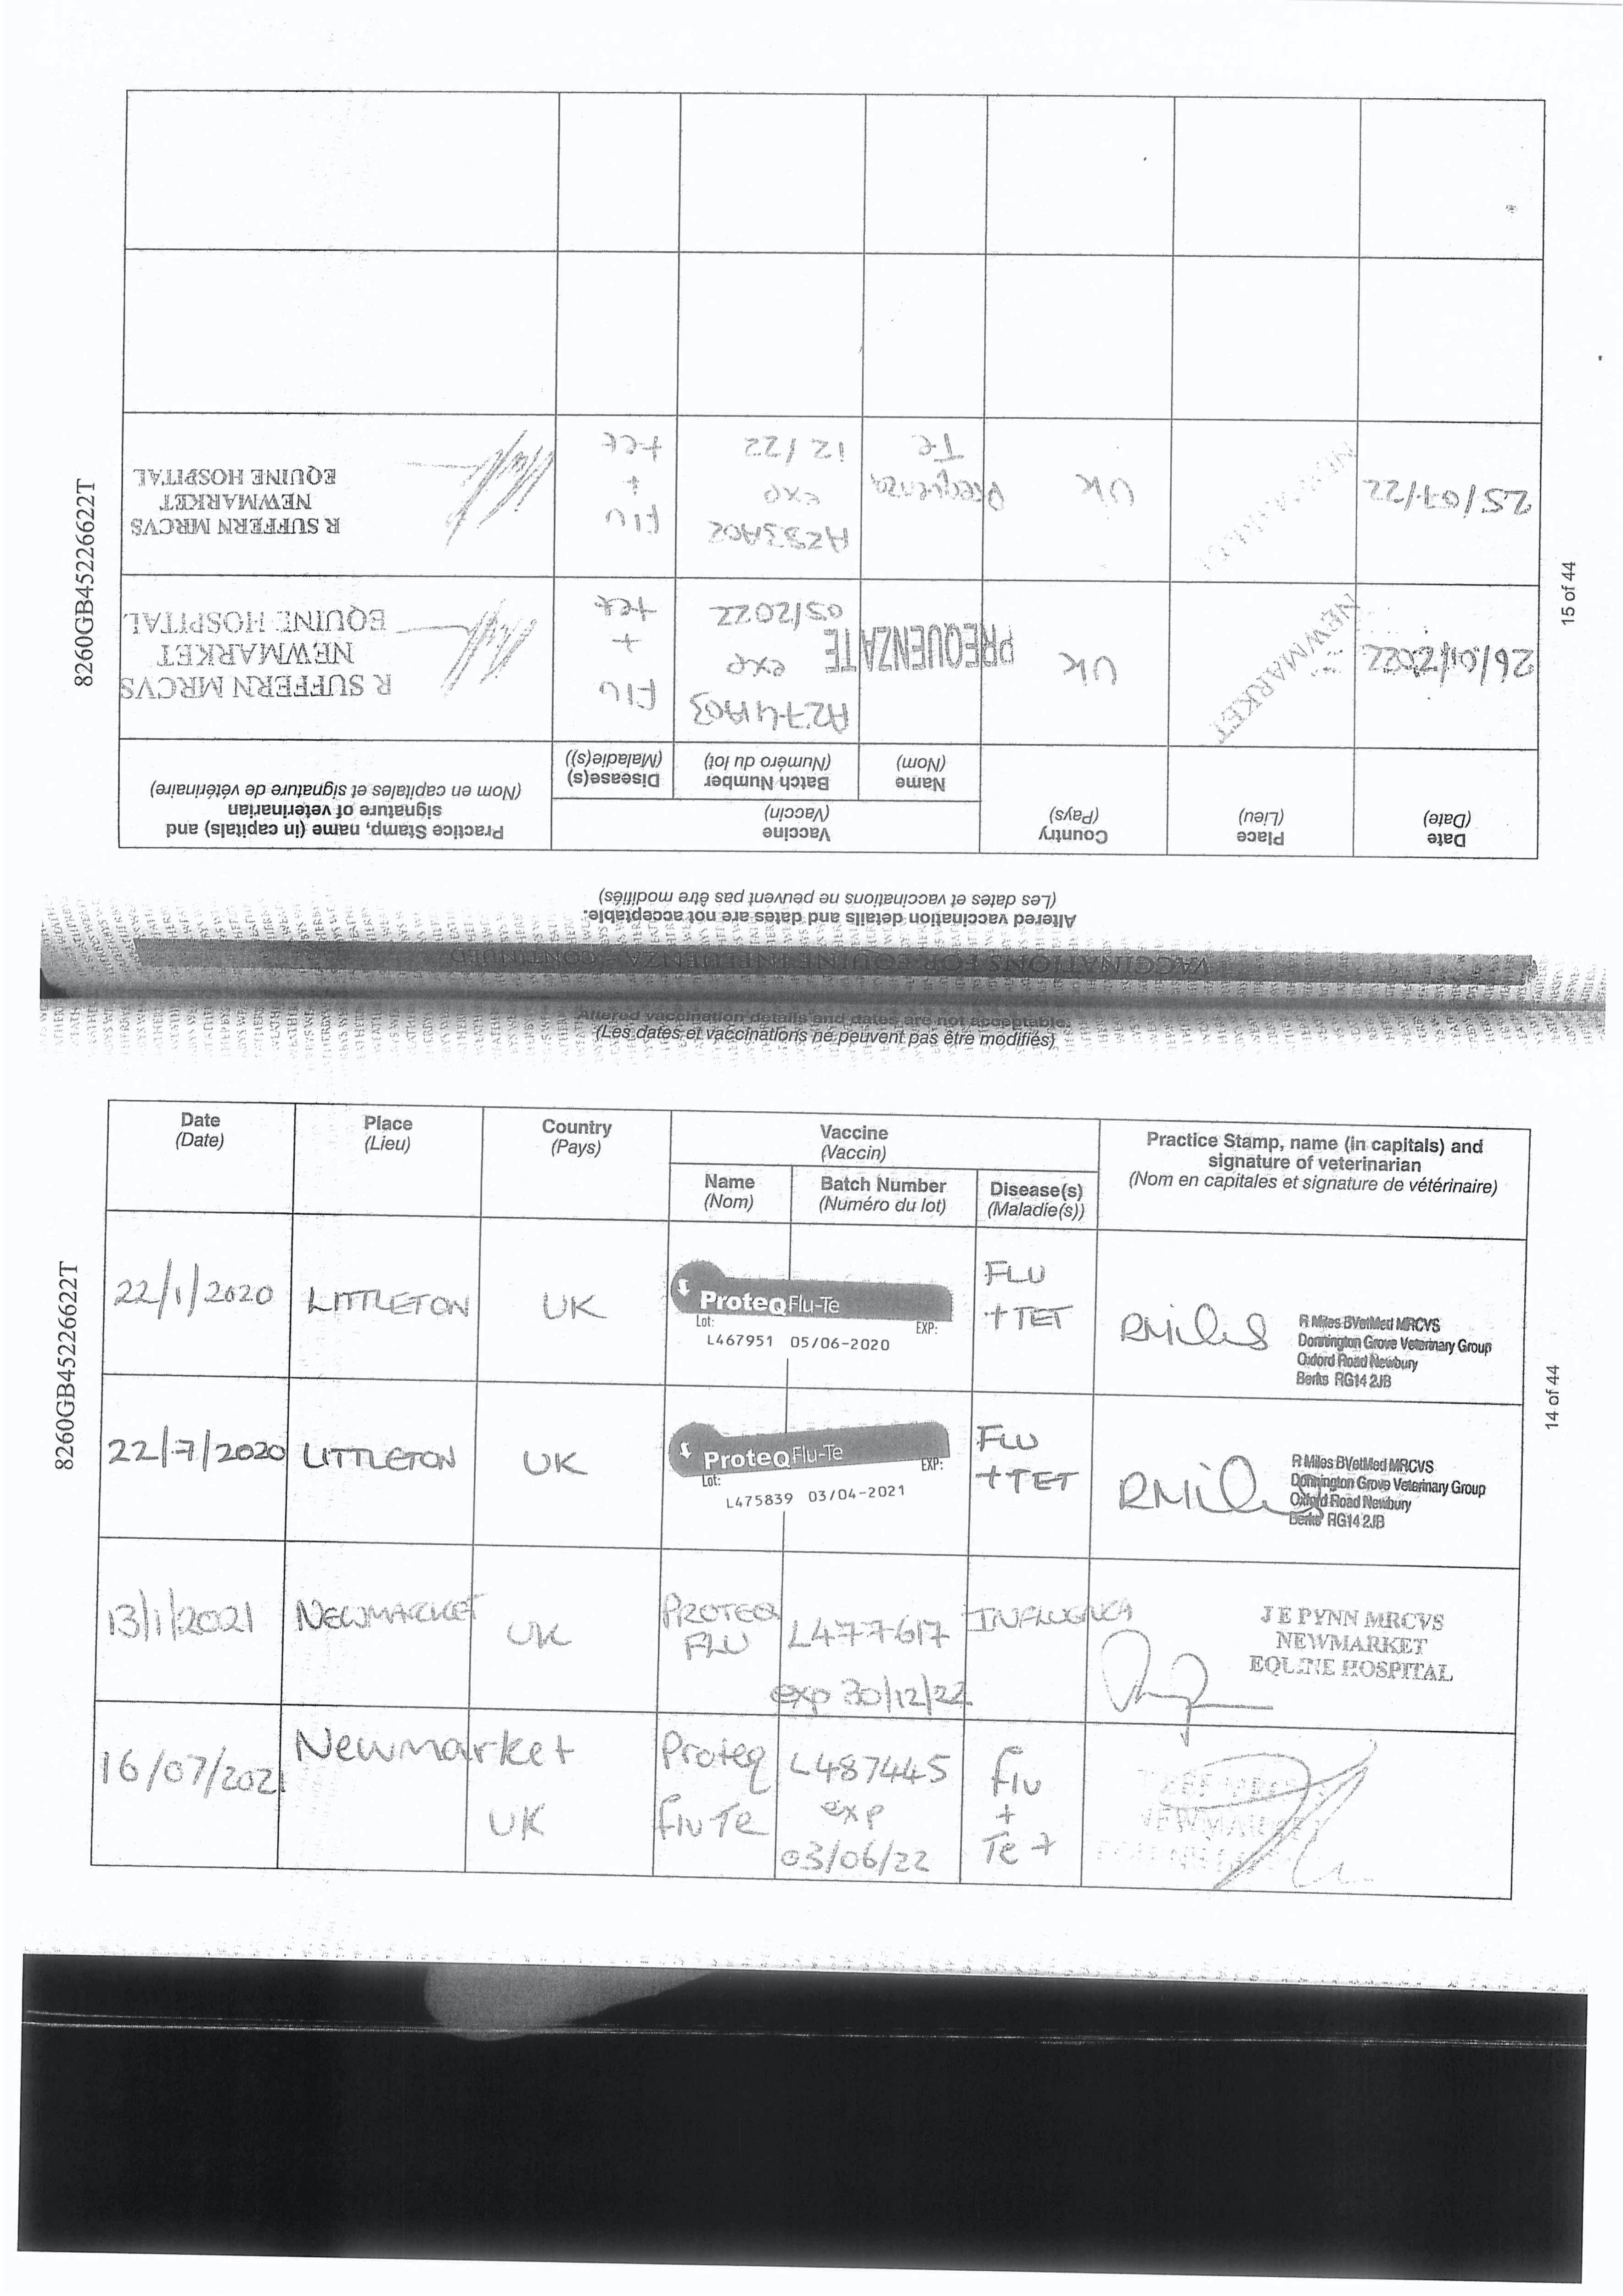 8260GB45226622T
14 of 44
Altered vaccination details and dates are not acceptable.
(Les dates et vaccinations ne peuvent pas être modifiés)
Date
(Date)
Place
(Lieu)
Country
(Pays)
Vaccine
(Vaccin)
Name
(Nom)
Batch Number
(Numéro du lot)
Disease(s)
(Maladie(s))
Practice Stamp, name (in capitals) and
signature of veterinarian
(Nom en capitales et signature de vétérinaire)
22/1/2020
LITTLETON
UK
ProteqFlu-Te
Lot:
EXP:
L467951 05/06-2020
FLU
+ TET
RMiles
R Miles BVetMed MRCVS
Donnington Grove Veterinary Group
Oxford Road Newbury
Berks RG14 2JB
22/7/2020
LITTLETON
UK
ProteqFlu-Te
Lot:
EXP:
L475839 03/04-2021
FLU
+ TET
RMiles
R Miles BVetMed MRCVS
Donnington Grove Veterinary Group
Oxford Road Newbury
Berks RG14 2JB
13/1/2021
NEWMARKET
UK
PROTEQ
FLU
L477617
exp 30/12/22
INFLUENZA
J E PYNN MRCVS
NEWMARKET
EQUINE HOSPITAL
16/07/2021
Newmarket
UK
Proteq
Flu Te
L487445
exp
03/06/22
Flu
+
Tet
NEWMARKET
8260GB45226622T
15 of 44
VACCINATIONS FOR EQUINE INFLUENZA - CONTINUED
Altered vaccination details and dates are not acceptable.
(Les dates et vaccinations ne peuvent pas être modifiés)
Date
(Date)
Place
(Lieu)
Country
(Pays)
Vaccine
(Vaccin)
Name
(Nom)
Batch Number
(Numéro du lot)
Disease(s)
(Maladie(s))
Practice Stamp, name (in capitals) and
signature of veterinarian
(Nom en capitales et signature de vétérinaire)
26/01/2022
NEWMARKET
UK
PREQUENZA TE
A274A03
exp
05/2022
Flu
+
tet
R SUFFERN MRCVS
NEWMARKET
EQUINE HOSPITAL
25/07/22
NEWMARKET
UK
Prequenza
Te
A283A02
exp
12/22
Flu
+
tet
R SUFFERN MRCVS
NEWMARKET
EQUINE HOSPITAL